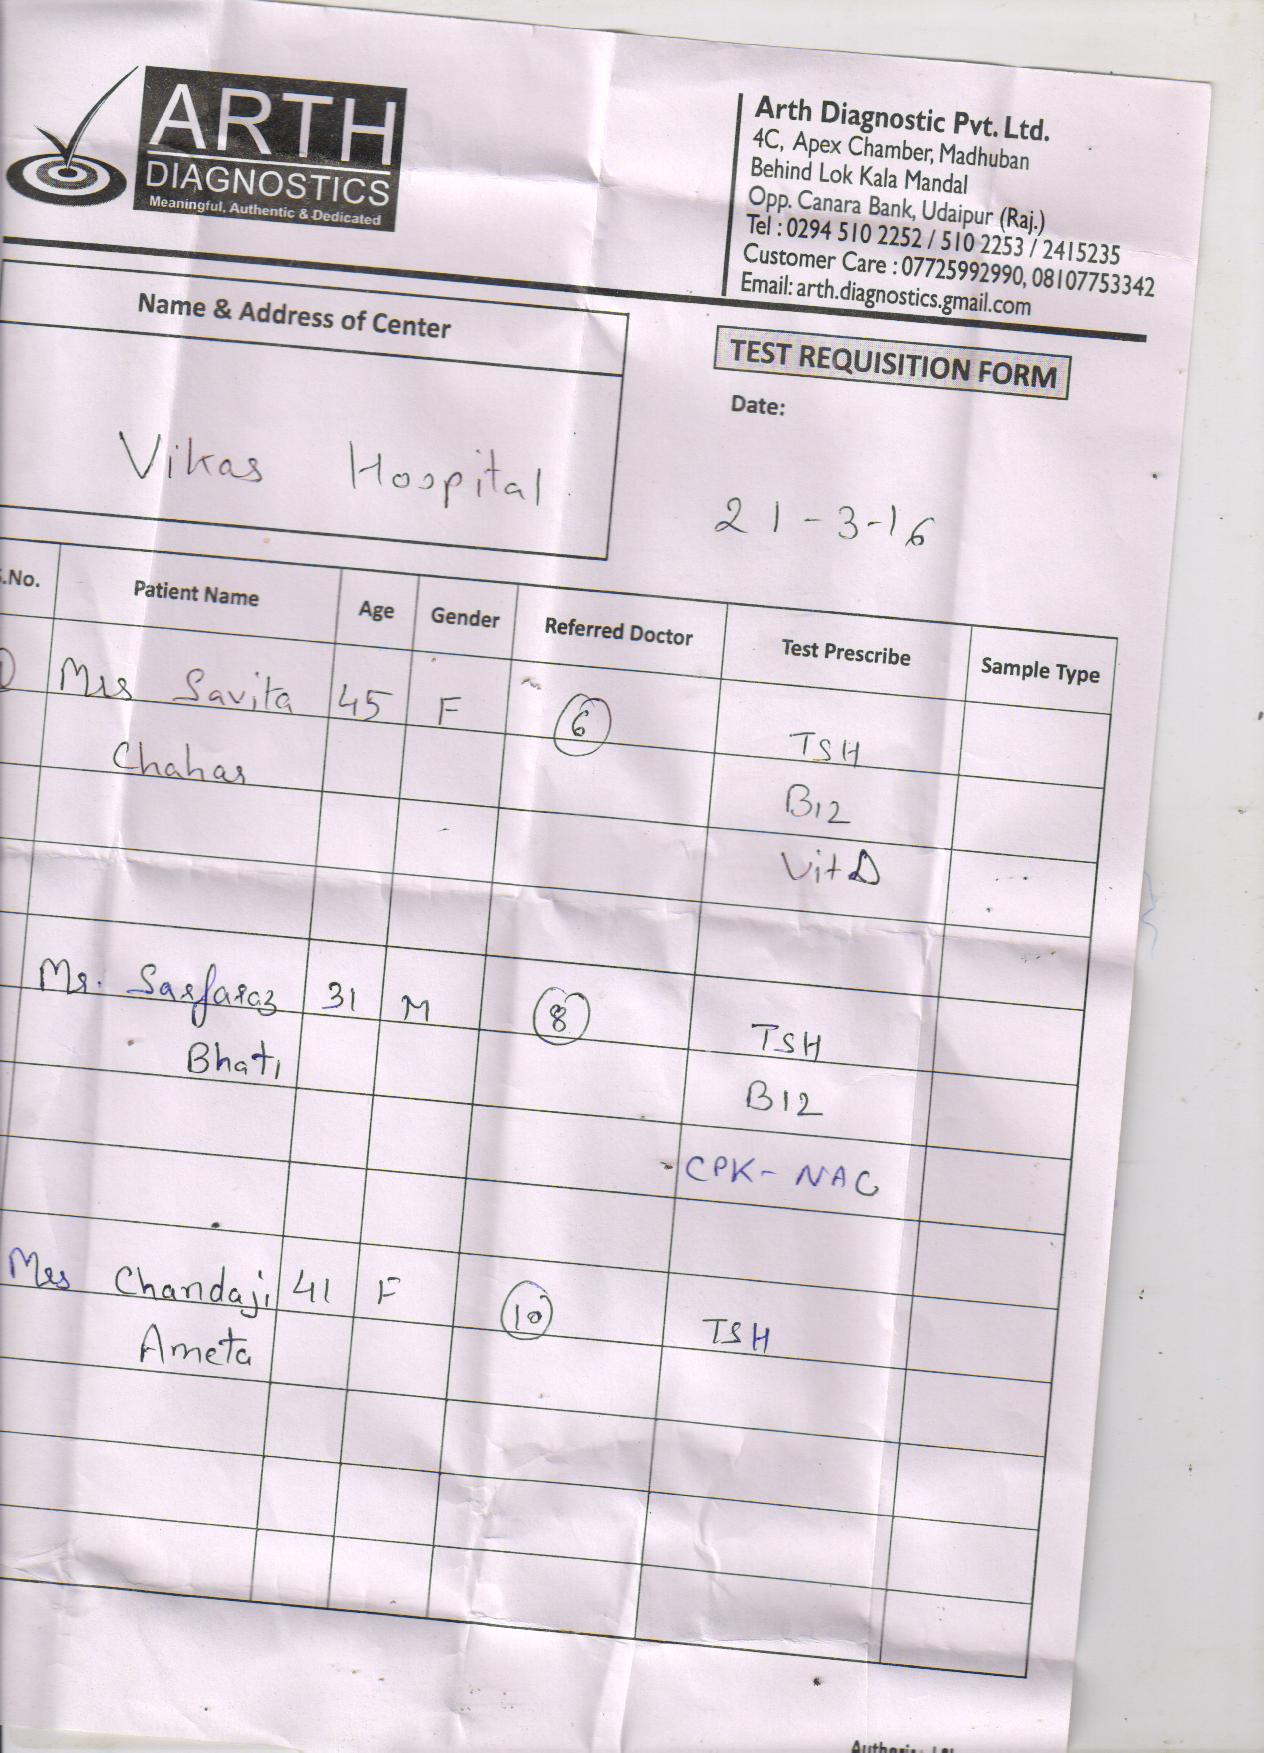 ARTH
DIAGNOSTICS
Meaningful, Authentic & Dedicated
Arth Diagnostic Pvt. Ltd.
4C, Apex Chamber, Madhuban
Behind Lok Kala Mandal
Opp. Canara Bank, Udaipur (Raj.)
Tel : 0294 510 2252 / 510 2253 / 2415235
Customer Care : 07725992990, 08107753342
Email: arth.diagnostics.gmail.com
Name & Address of Center
Vikas Hospital
TEST REQUISITION FORM
Date:
21-3-16
.No. Patient Name Age Gender Referred Doctor Test Prescribe Sample Type
Mrs Savita 45 F 6 TSH
Chahar B12
Vit D
Mr. Sarfaraz 31 M 8 TSH
Bhati B12
CPK- NAC
Mrs Chandaji 41 F 10 TSH
Ameta